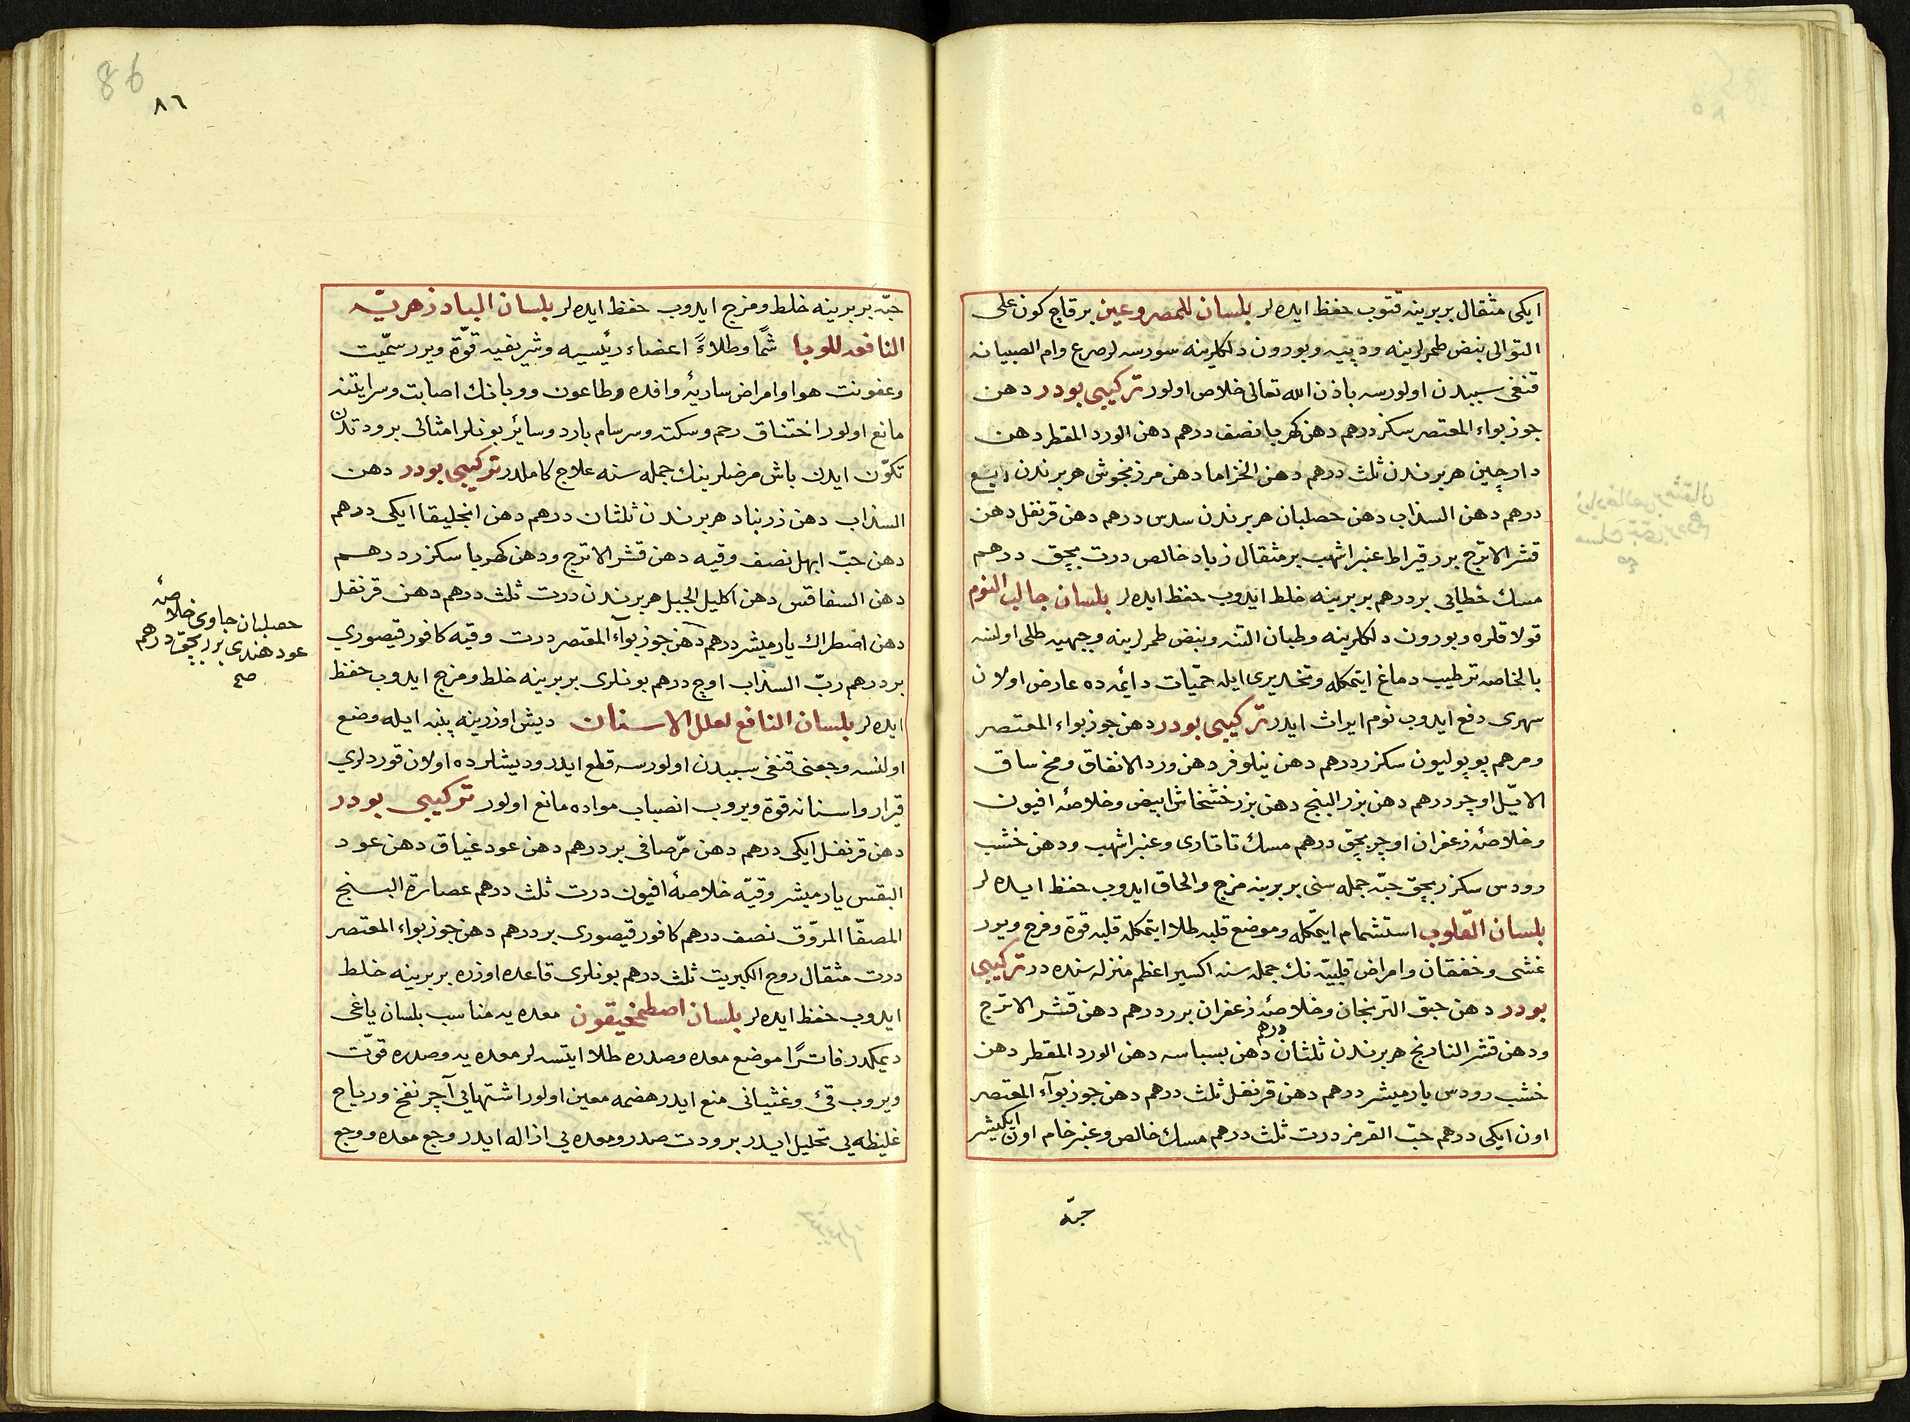 ایکی مثقال بربرینه قتوب حفظ ایده‌لر بلسان للمصروعین برقاچ کون علی
التوالی نبض طمرلرینه ودپیه وبورون دلکلرینه سورسه‌لر صرع وام الصبیانه
قنغی سببدن اولورسه باذن الله تعالی خلاص اولور ترکیبی بودر دهن
جوزبواء المعتصر سکز درهم دهن کهربا نصف درهم دهن الورد المقطر دهن
دارچین هربرندن ثلث درهم دهن الخزاما دهن مرزنجوش هربرندن ربع
درهم دهن السذاب دهن حصلبان هربرندن سدس درهم دهن قرنفل دهن
قشر الاترج برر قیراط عنبر اشهب برمثقال زباد خالص درت بچق درهم
مسك خطایی بردرهم بربرینه خلط ایدوب حفظ ایده‌لر بلسان جالب النوم
قولاقلره وبورون دلکلرینه وطبان التنه ونبض طمرلرینه وجبهیه طلی اولنسه
بالخاصه ترطیب دماغ ایتمکله وتخدیری ایله حمیات دائمه‌ده عارض اولان
سهری دفع ایدوب نوم ایراث ایدر ترکیبی بودر دهن جوزبواء المعتصر
ومرهم پوپولیون سکزر درهم دهن نیلوفر دهن ورد الانفاق ومخ ساق
الایّل اوچر درهم دهن بزر البنج دهن بزر خشخاش ابیض وخلاصهٔ افیون
وخلاصهٔ زعفران اوچر بچق درهم مسك تاتاری وعنبر اشهب ودهن خشب
رودس سکزر بچق حبّه جمله‌سنی بربرینه مزج والحاق ایدوب حفظ ایده‌لر
بلسان القلوب استشمام ایتمکله وموضع قلبه طلا ایتمکله قلبه قوة وفرح ویرر
غشی وخفقان وامراض قلبیّه‌نك جمله‌سنه اکسیر اعظم منزله‌سنده‌در ترکیبی
بودر دهن حبق الترنجان وخلاصهٔ زعفران برر درهم دهن قشر الاترج
ودهن قشر النارنج هربرندن ثلثان درهم دهن بسباسه دهن الورد المقطر دهن
خشب رودس یارمیشر درهم دهن قرنفل ثلث درهم دهن جوزبوآء المعتصر
اون ایکی درهم حبّ القرمز درت ثلث درهم مسك خالص وعنبر خام اون ایکیشر
حبّه
86
٨٦
حبّه بربرینه خلط ومزج ایدوب حفظ ایده‌لر بلسان البادزهریّه
النافعه للوبا شمًّا وطلاءً اعضاء رئیسیه وشریفیه قوّة ویرر سمّیت
وعفونت هوا وامراض ساریهٔ وافده وطاعون ووبانك اصابت وسرایتنه
مانع اولور اختناق رحم وسکته وسرسام بارد وسائر بونلر امثالی برودتدن
تکوّن ایدن باش مرضلرینك جمله‌سنه علاج کاملدر ترکیبی بودر دهن
السذاب دهن زرنباد هربرندن ثلثان درهم دهن انجلیقا ایکی درهم
دهن حبّ ابهل نصف وقیه دهن قشر الاترج ودهن کهربا سکزر درهم
دهن السفاقس دهن اکلیل الجبل هربرندن درت ثلث درهم دهن قرنفل
دهن اصطراك یارمیشر درهم دهن جوزبوآء المعتصر درت وقیه کافور قیصوری
بردرهم ربّ السذاب اوچ درهم بونلری بربرینه خلط ومزج ایدوب حفظ
حصلبان جاوی خلاصهٔ
عود هندی برر بچق درهم
صح
ایده‌لر بلسان النافع لعلل الاسنان دیش اوزرینه پنبه ایله وضع
اولنسه وجعنی قنغی سببدن اولورسه قطع ایدر ودیشلرده اولان قوردلری
قیرار واسنانه قوة ویروب انصباب مواده مانع اولور ترکیبی بودر
دهن قرنفل ایکی درهم دهن مرّ صافی بردرهم دهن عود غیاق دهن عود
البقس یارمیشر وقیّه خلاصهٔ افیون درت ثلث درهم عصارة البنج
المصفّا المروّق نصف درهم کافور قیصوری بردرهم دهن جوزبواء المعتصر
درت مثقال روح الکبریت ثلث درهم بونلری قاعده اوزره بربرینه خلط
ایدوب حفظ ایده‌لر بلسان اصطمخیقون معده‌یه مناسب بلسان یاغی
دیمکدر فاترًا موضع معده وصدره طلا ایتسه‌لر معده‌یه وصدره قوّت
ویروب قئ وغثیانی منع ایدر هضمه معین اولور اشتهایی آچر نفخ وریاح
غلیظه‌یی تحلیل ایدر برودت صدر ومعده‌یی ازاله ایدر وجع معده ووجع